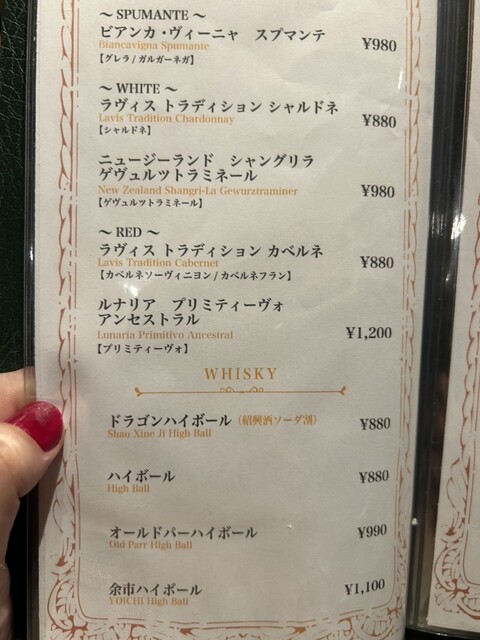 ～ SPUMANTE ～
ビアンカ・ヴィーニャ　スプマンテ
¥980
Biancavigna Spumante
【グレラ / ガルガーネガ】
～ WHITE ～
ラヴィス トラディション シャルドネ
¥880
Lavis Tradition Chardonnay
【シャルドネ】
ニュージーランド　シャングリラ
ゲヴュルツトラミネール
¥980
New Zealand Shangri-La Gewurztraminer
【ゲヴュルツトラミネール】
～ RED ～
ラヴィス トラディション カベルネ
¥880
Lavis Tradition Cabernet
【カベルネソーヴィニヨン / カベルネフラン】
ルナリア　プリミティーヴォ
アンセストラル
¥1,200
Lunaria Primitivo Ancestral
【プリミティーヴォ】
WHISKY
ドラゴンハイボール（紹興酒ソーダ割）
¥880
Shao Xine Ji High Ball
ハイボール
¥880
High Ball
オールドパーハイボール
¥990
Old Parr High Ball
余市ハイボール
¥1,100
YOICHI High Ball